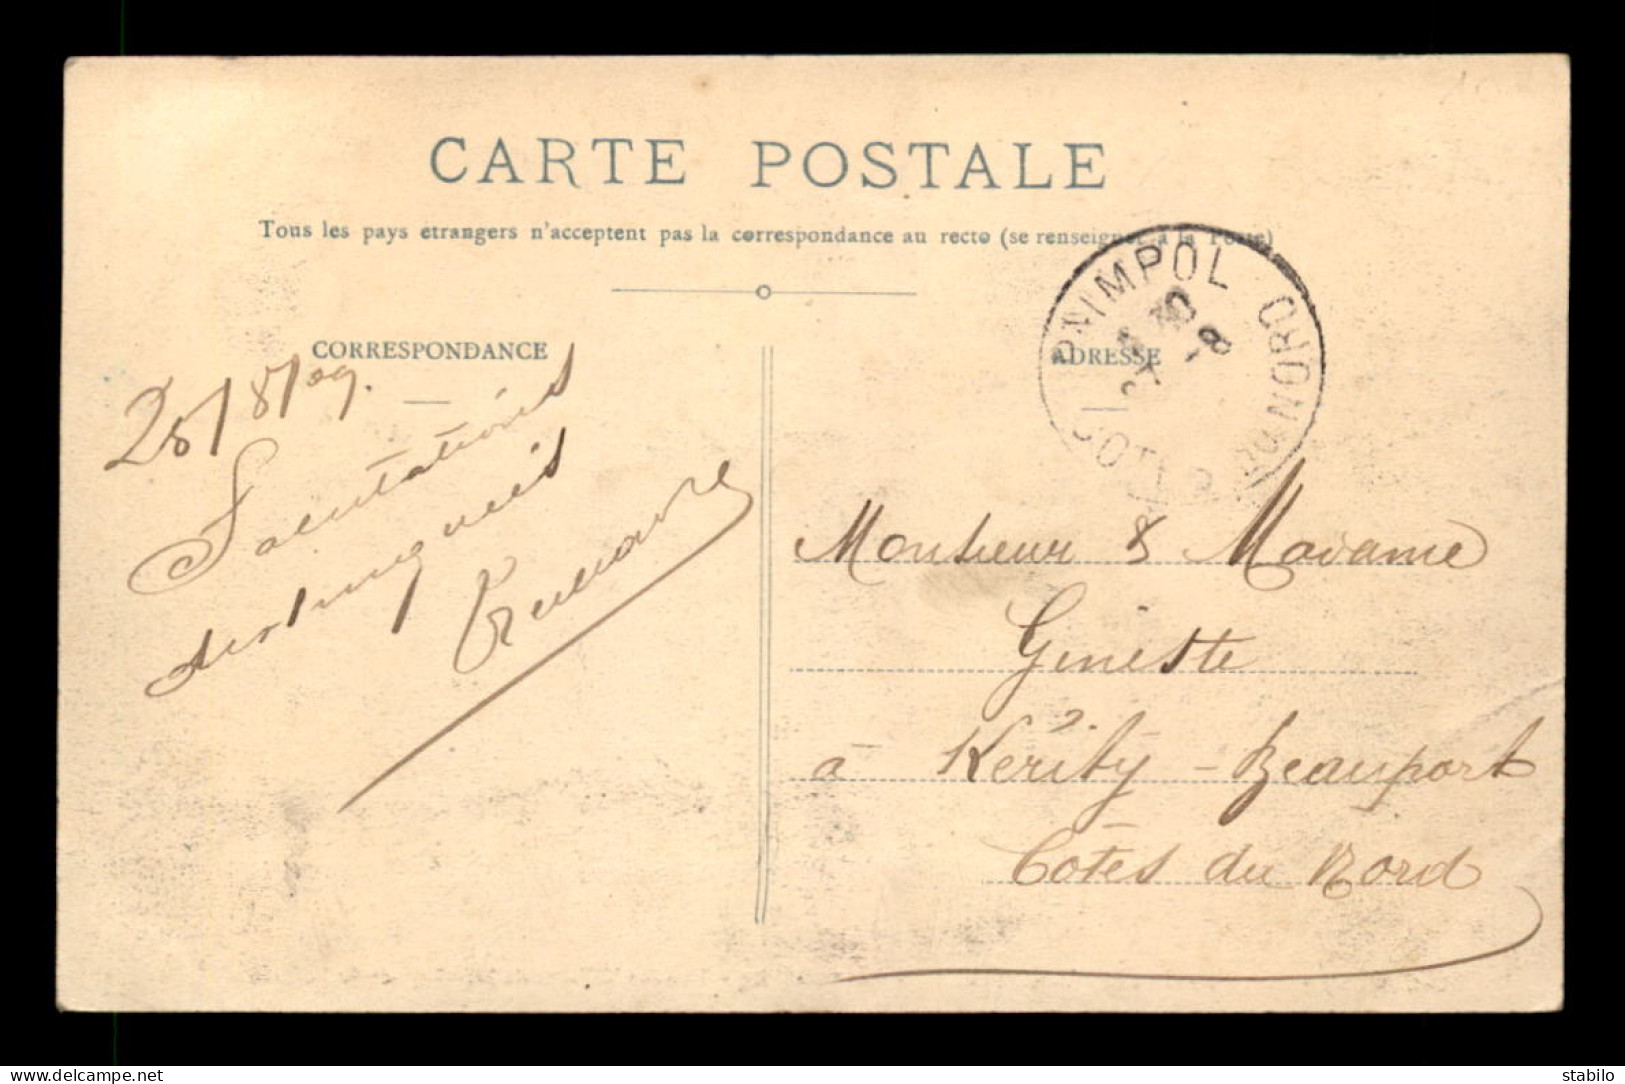 CARTE POSTALE
Tous les pays etrangers n'acceptent pas la correspondance au recto (se renseigner à la Poste)
CORRESPONDANCE
ADRESSE
PAIMPOL
CÔTES DU NORD
-8
28/8/09.
Salutations
distinguées
Monsieur & Madame
Gineste
à Kérity-Beauport
Côtes du Nord
delcampe.net
stabilo